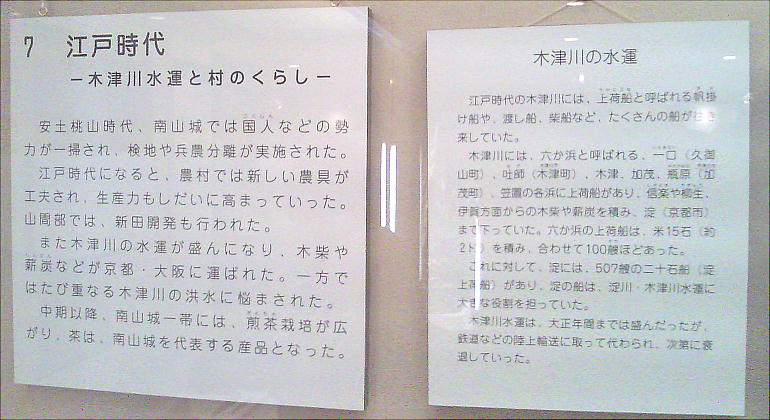 7 江戸時代
－木津川水運と村のくらし－
安土桃山時代、南山城では国人などの勢
力が一掃され、検地や兵農分離が実施された。
江戸時代になると、農村では新しい農具が
工夫され、生産力もしだいに高まっていった。
山間部では、新田開発も行われた。
また木津川の水運が盛んになり、木柴や
薪炭などが京都・大阪に運ばれた。一方で
はたび重なる木津川の洪水に悩まされた。
中期以降、南山城一帯には、煎茶栽培が広
がり、茶は、南山城を代表する産品となった。
木津川の水運
江戸時代の木津川には、上荷船と呼ばれる帆掛
け船や、渡し船、柴船など、たくさんの船が往き
来していた。
木津川には、六か浜と呼ばれる、一口（久御
山町）、吐師（木津町）、木津、加茂、瓶原（加
茂町）、笠置の各浜に上荷船があり、信楽や柳生、
伊賀方面からの木柴や薪炭を積み、淀（京都市）
まで下っていた。六か浜の上荷船は、米15石（約
2㌧）を積み、合わせて100艘ほどあった。
これに対して、淀には、507艘の二十石船（淀
上荷船）があり、淀の船は、淀川・木津川水運に
大きな役割を担っていた。
木津川水運は、大正年間までは盛んだったが、
鉄道などの陸上輸送に取って代わられ、次第に衰
退していった。